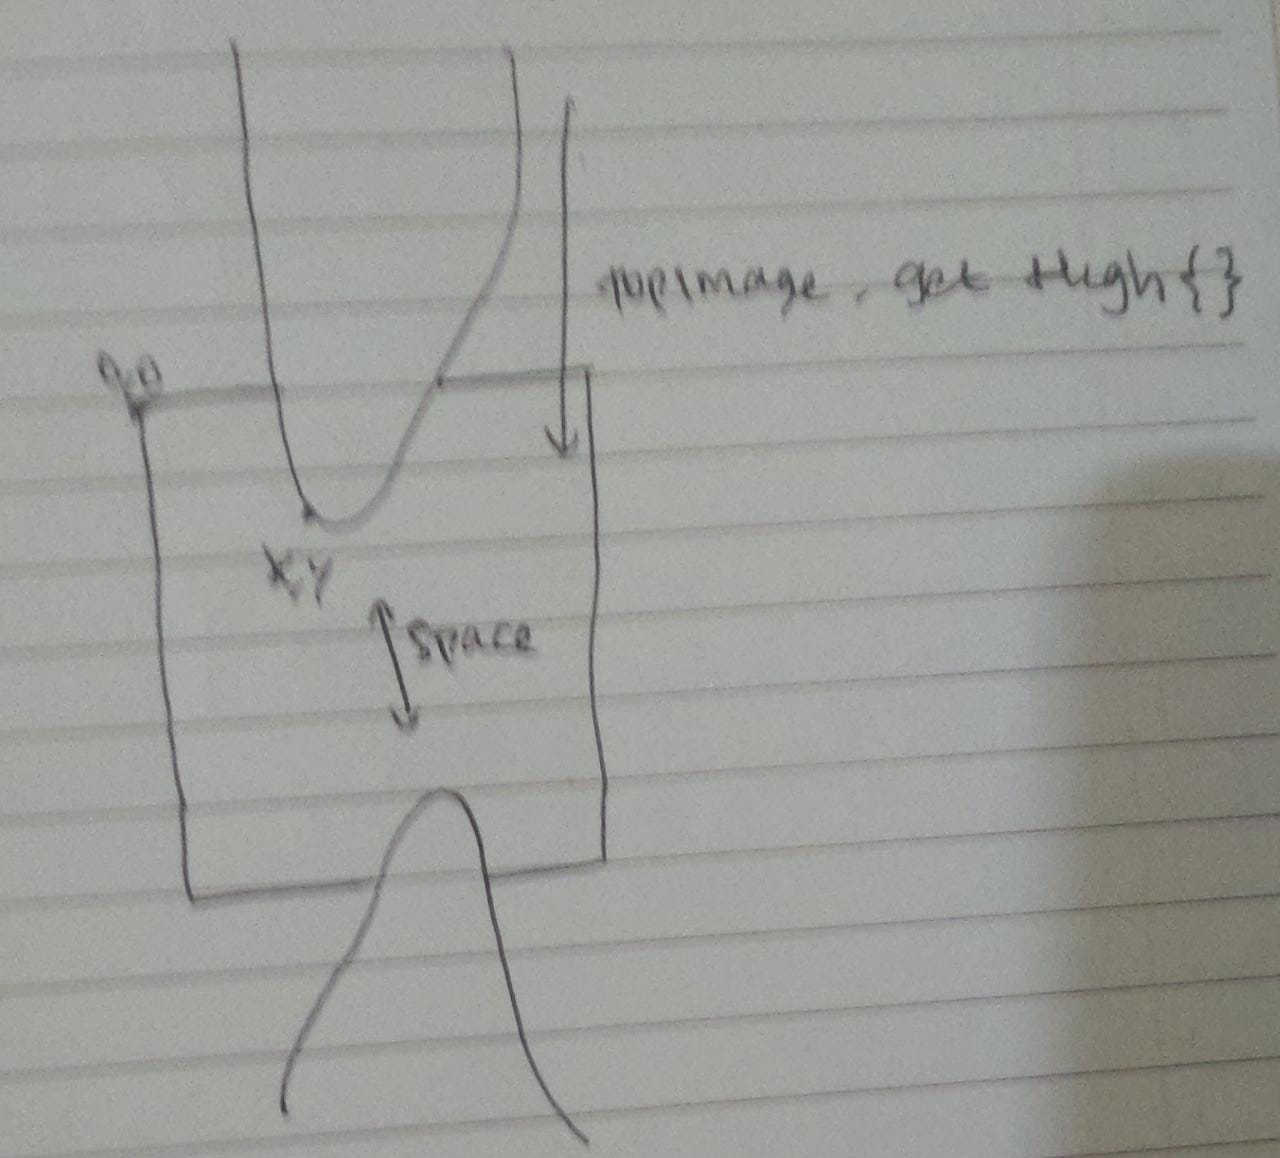 topimage. get High{}
0,0
X,Y
space